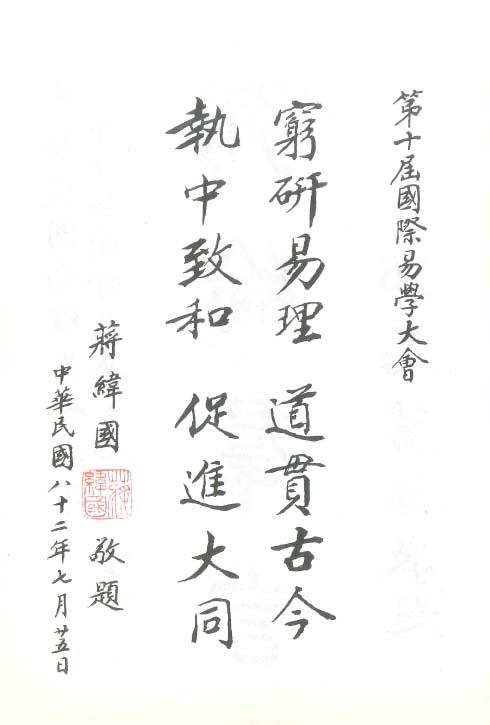 第十屆國際易學大會
窮研易理 道貫古今
執中致和 促進大同
蔣緯國 敬題
蔣緯國
中華民國八十二年七月廿五日